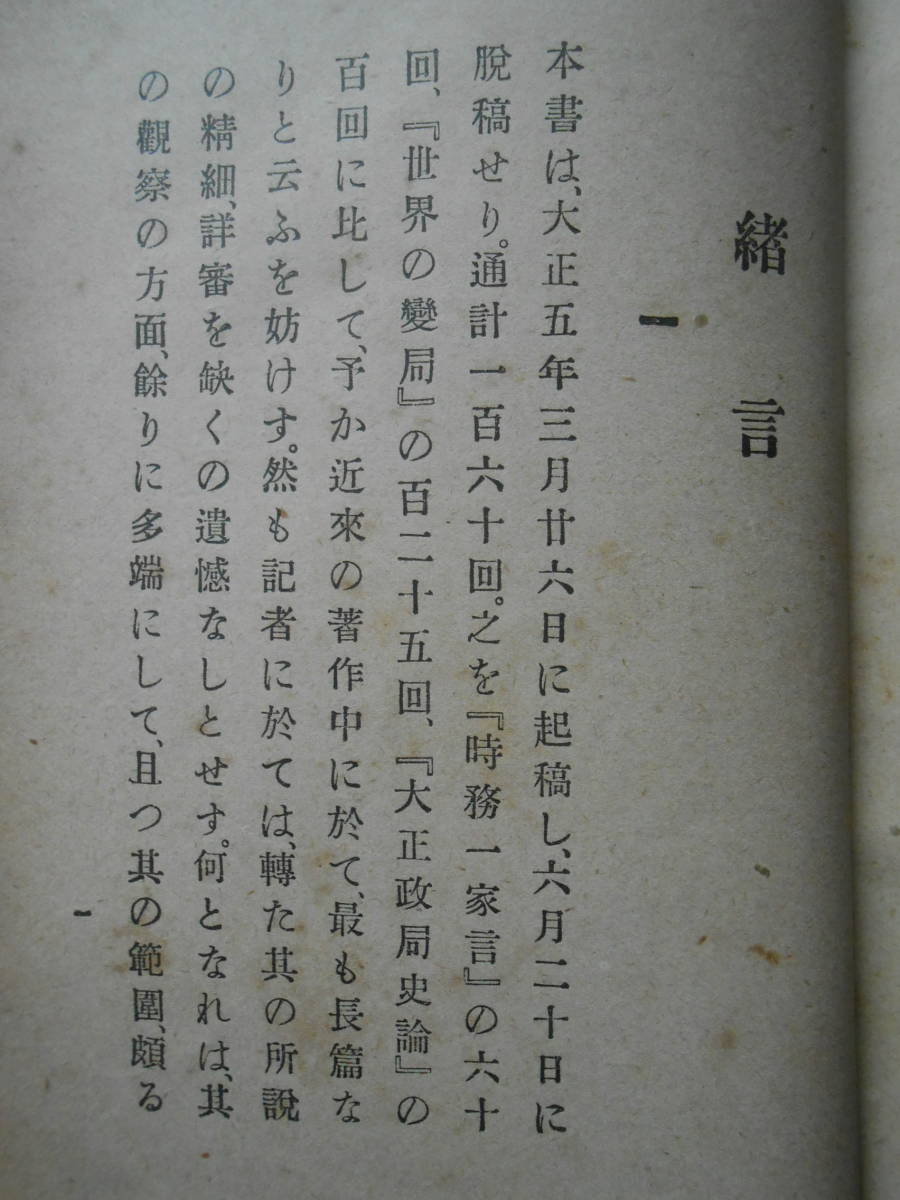 緒言
一
本書は、大正五年三月廿六日に起稿し、六月二十日に
脫稿せり。通計一百六十回。之を『時務一家言』の六十
回、『世界の變局』の百二十五回、『大正政局史論』の
百回に比して、予か近來の著作中に於て、最も長篇な
りと云ふを妨けす。然も記者に於ては、轉た其の所說
の精細、詳審を缺くの遺憾なしとせす。何となれは、其
の觀察の方面、餘りに多端にして、且つ其の範圍、頗る
一